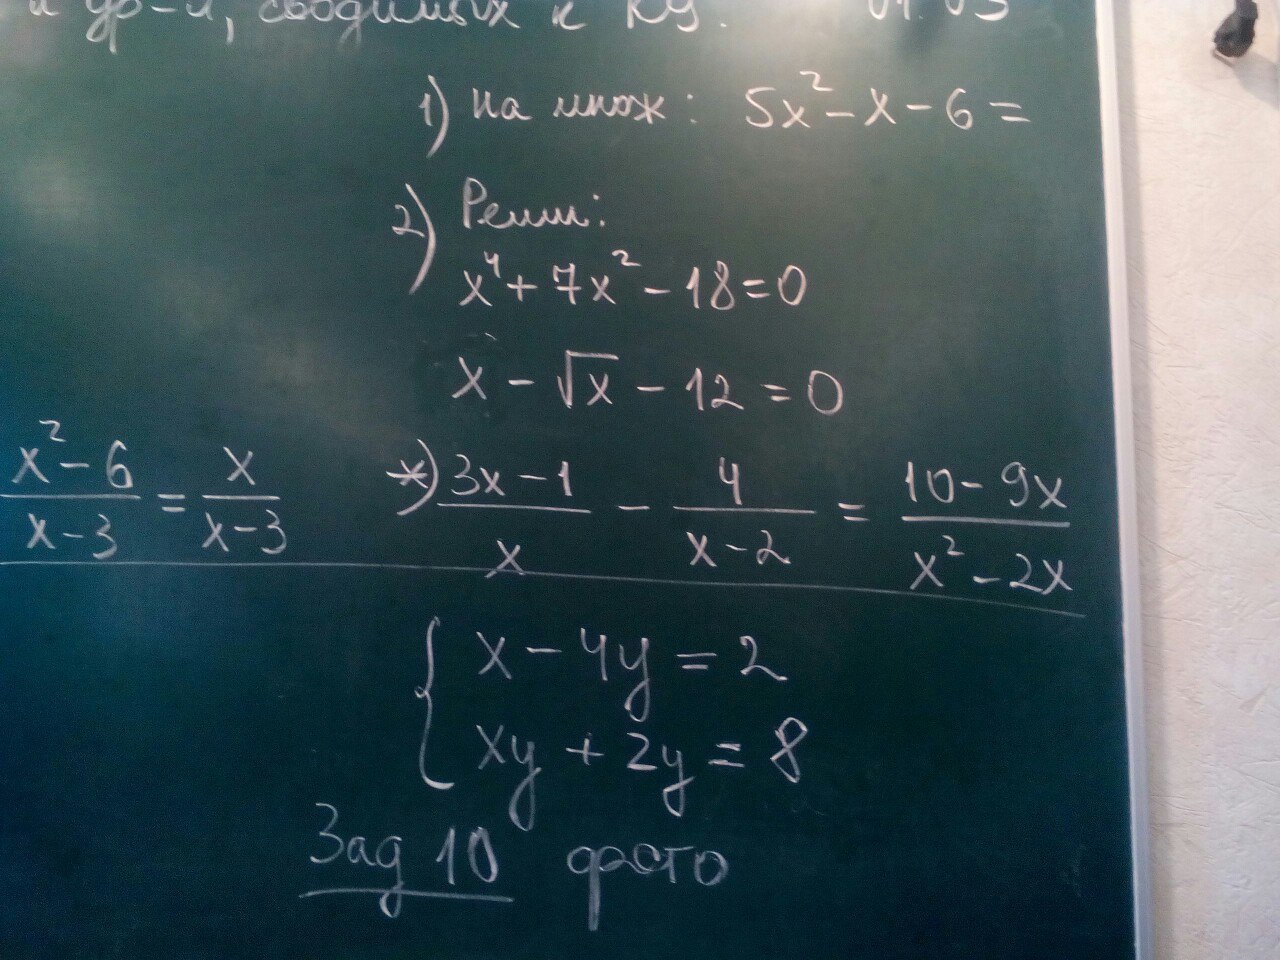 ур-я, сводимых к КУ. 01.03
1) На множ: 5x² - x - 6 =
2) Реши:
x⁴ + 7x² - 18 = 0
x - √x - 12 = 0
(x² - 6)/(x - 3) = x/(x - 3) *) (3x - 1)/x - 4/(x - 2) = (10 - 9x)/(x² - 2x)
{ x - 4y = 2
xy + 2y = 8
Зад 10 фото